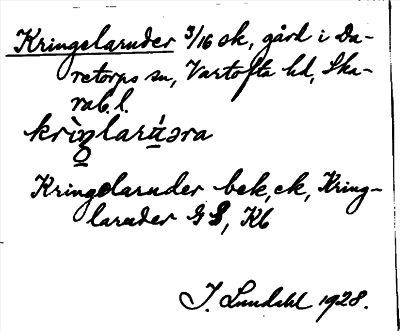 Kringelaruder 3/16 sk, gård i Da-
retorps sn, Vartofta hd, Ska-
rab. l.
krìŋlarùəra
Kringelaruder bek, ek, Kring-
laruder GS, Kb
J. Lundahl 1928.